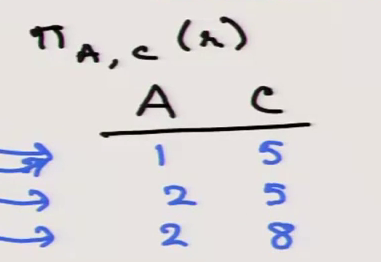 π A, C (r)
A C
1 5
2 5
2 8